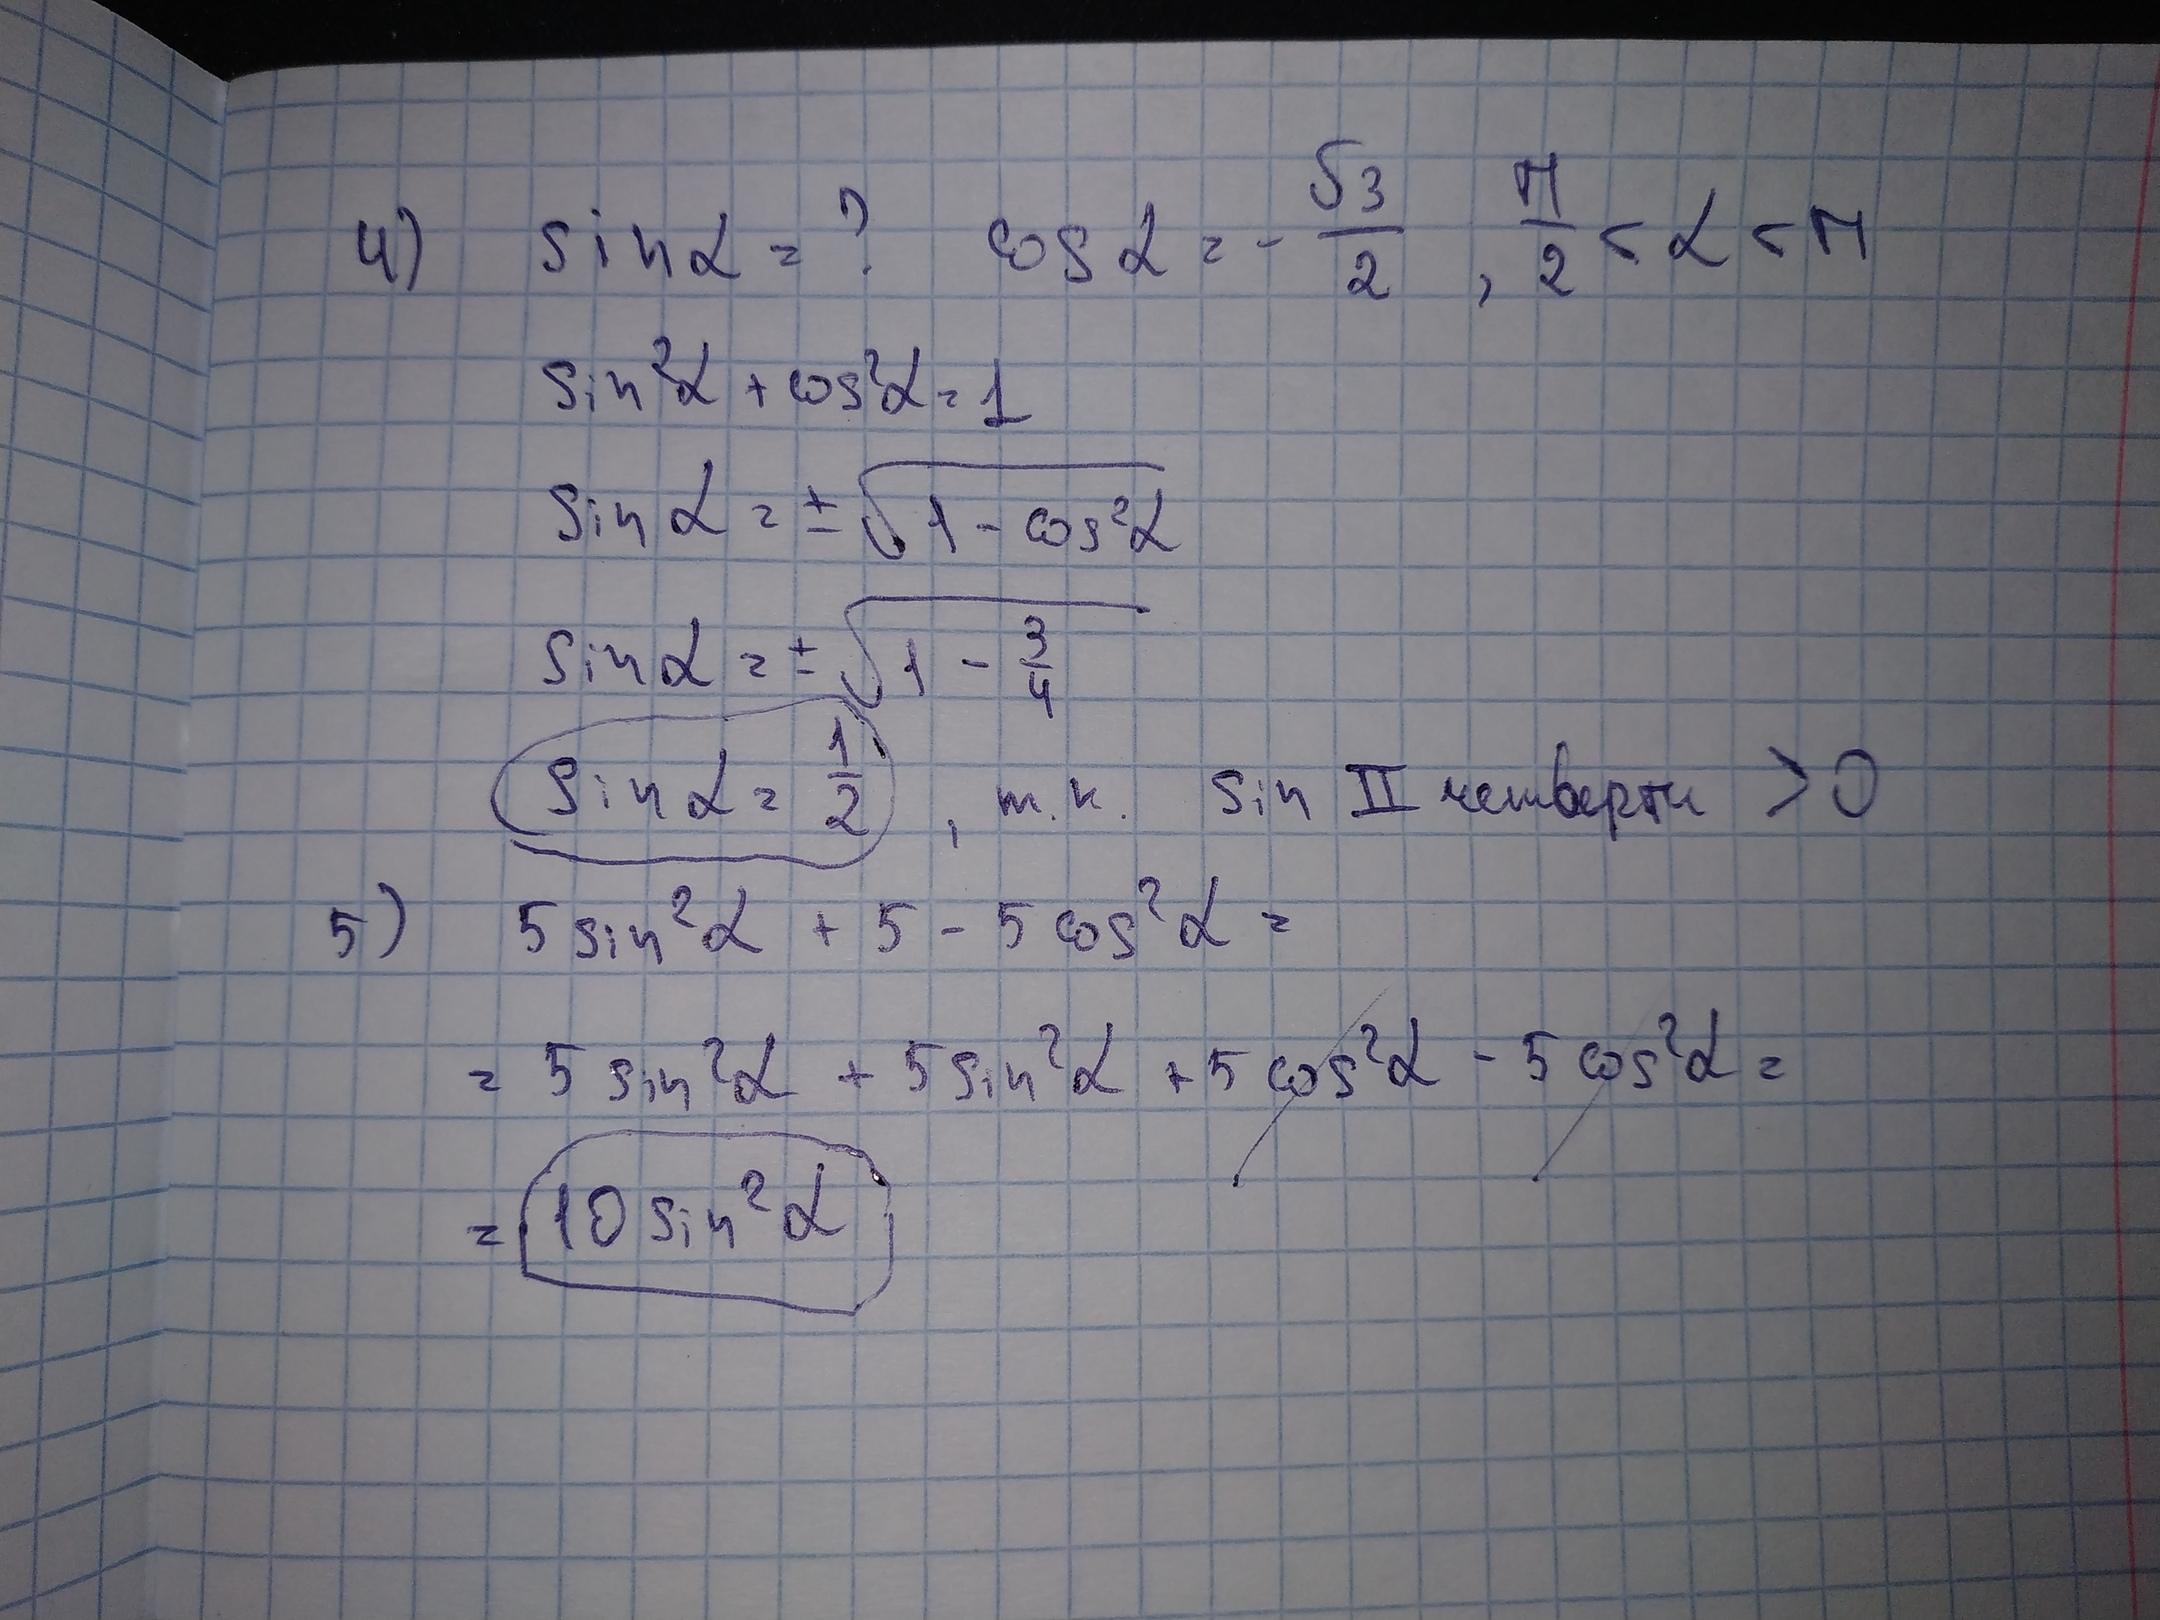 4) sinα = ? cosα = - √3/2 , π/2 < α < π
sin²α + cos²α = 1
sinα = ± √1 - cos²α
sinα = ± √1 - 3/4
sinα = 1/2 , т.к. sin II четверти > 0
5) 5 sin²α + 5 - 5 cos²α =
= 5 sin²α + 5 sin²α + 5 cos²α - 5 cos²α =
= 10 sin²α